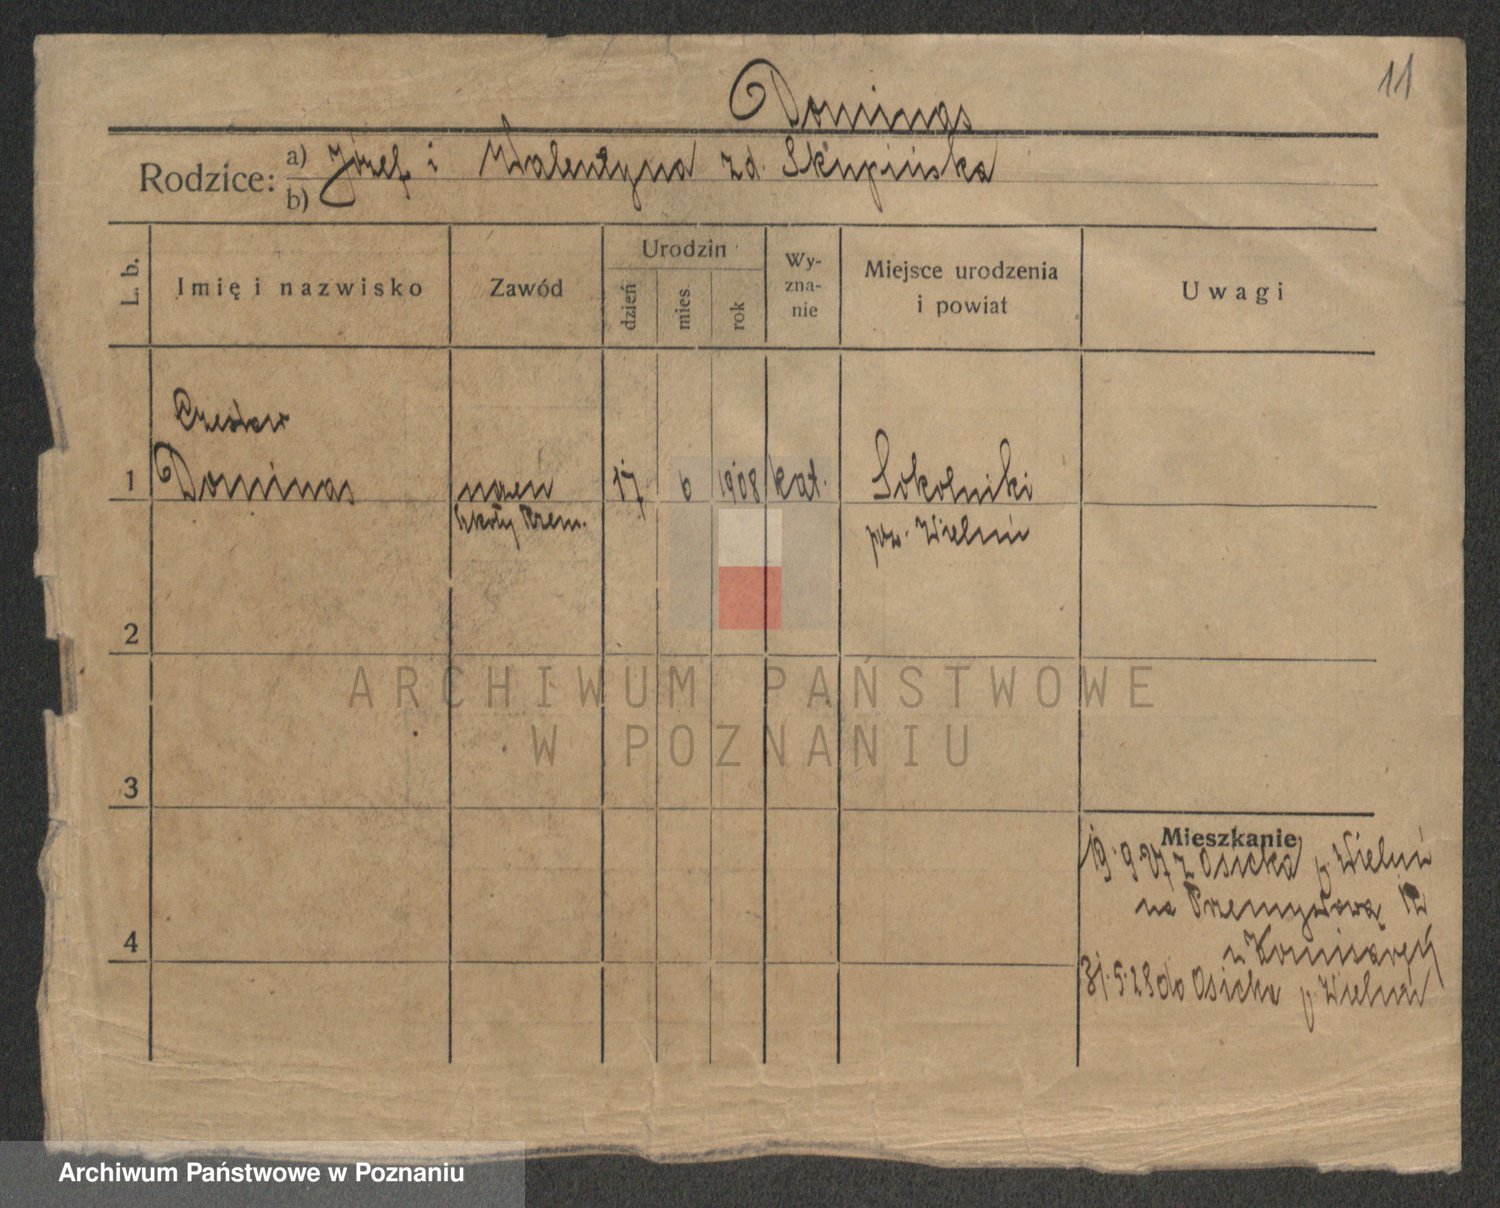 11
Dominas
Rodzice: a) Józef i Walentyna zd. Skupińska
b)
L. b.
Imię i nazwisko
Zawód
Urodzin
dzień
mies.
rok
Wy-
zna-
nie
Miejsce urodzenia
i powiat
Uwagi
Czesław
1 Dominas
uczeń
Szkoły Rzem.
17 6 1908 kat.
Sokolniki
pow. Wieluń
2
3
4
Mieszkanie
19.9.27 z Osicka p. Wieluń
na Przemysłową 12
u
31.5.28 do Osicka p. Wieluń
ARCHIWUM PAŃSTWOWE
W POZNANIU
Archiwum Państwowe w Poznaniu